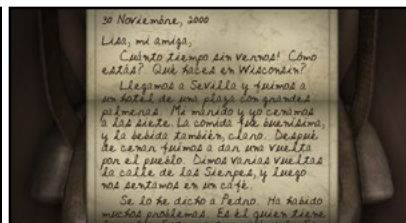 30 Noviembre, 2000
Lisa, mi amiga,
Cuánto tiempo sin vernos! Cómo
estás? Qué haces en Wisconsin?
Llegamos a Sevilla y fuimos a
un hotel de una plaza con grandes
palmeras. Mi marido y yo cenamos
a las siete. La comida fue buenísima,
y la bebida también, claro. Despué
de cenar fuimos a dar una vuelta
por el pueblo. Dimos varias vueltas
la calle de las Sierpes, y luego
nos sentamos en un café.
Se lo he dicho a Pedro. Ha habido
muchos problemas. Es él quien tiene